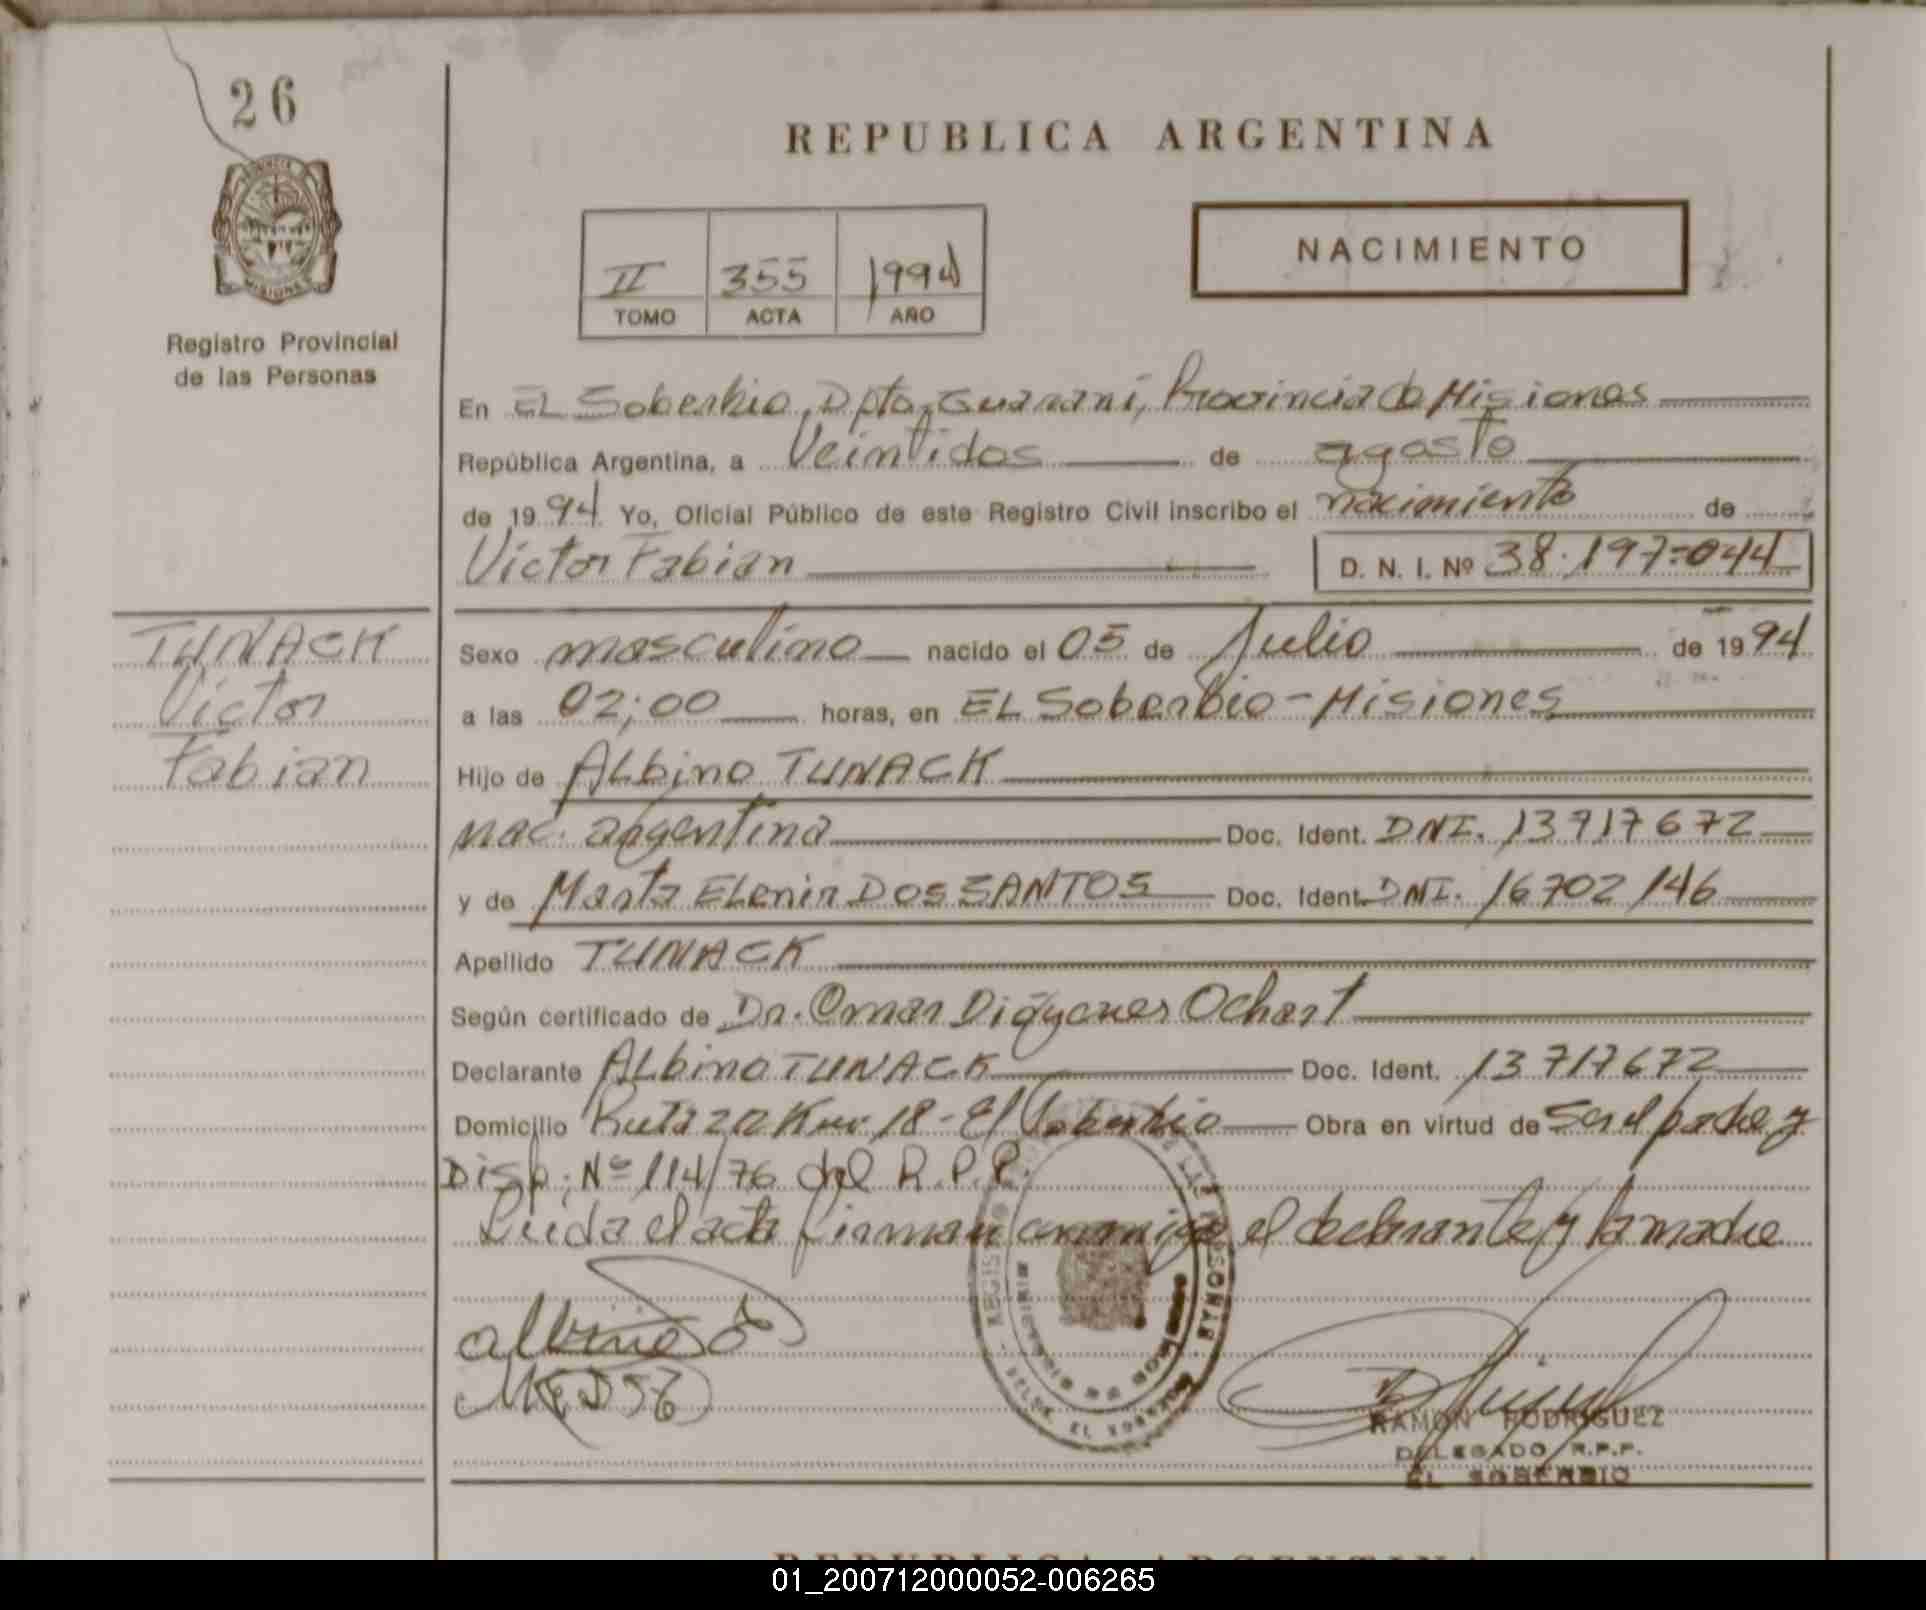 26
REPUBLICA ARGENTINA
NACIMIENTO
II 355 1994
TOMO ACTA AÑO
MISIONES
Registro Provincial
de las Personas
En EL Soberbio, Dpto, Guarani, Provincia de Misiones
República Argentina, a Veintidos de agosto
de 1994 Yo, Oficial Público de este Registro Civil inscribo el nacimiento de
Victor Fabian D. N. I. Nº 38.197=044
TUNACK
Victor
Fabian
Sexo masculino nacido el 05 de Julio de 1994
a las 02;00 horas, en EL Soberbio - Misiones
Hijo de ALbino TUNACK
nac. argentina Doc. Ident. DNI. 13717672
y de Marta ELenir DOS SANTOS Doc. Ident. DNI. 16702146
Apellido TUNACK
Según certificado de Dr. Omar Diógenes Ochart
Declarante ALbino TUNACK Doc. Ident. 13717672
Domicilio Ruta 2 Km 18 - El Soberbio Obra en virtud de Ser el padre y
Disp; Nº 114/76 del R.P.P.
Leida el acta firman conmigo el declarante y la madre
RAMON RODRIGUEZ
DELEGADO R.P.P.
EL SOBERBIO
REPUBLICA ARGENTINA
01_200712000052-006265